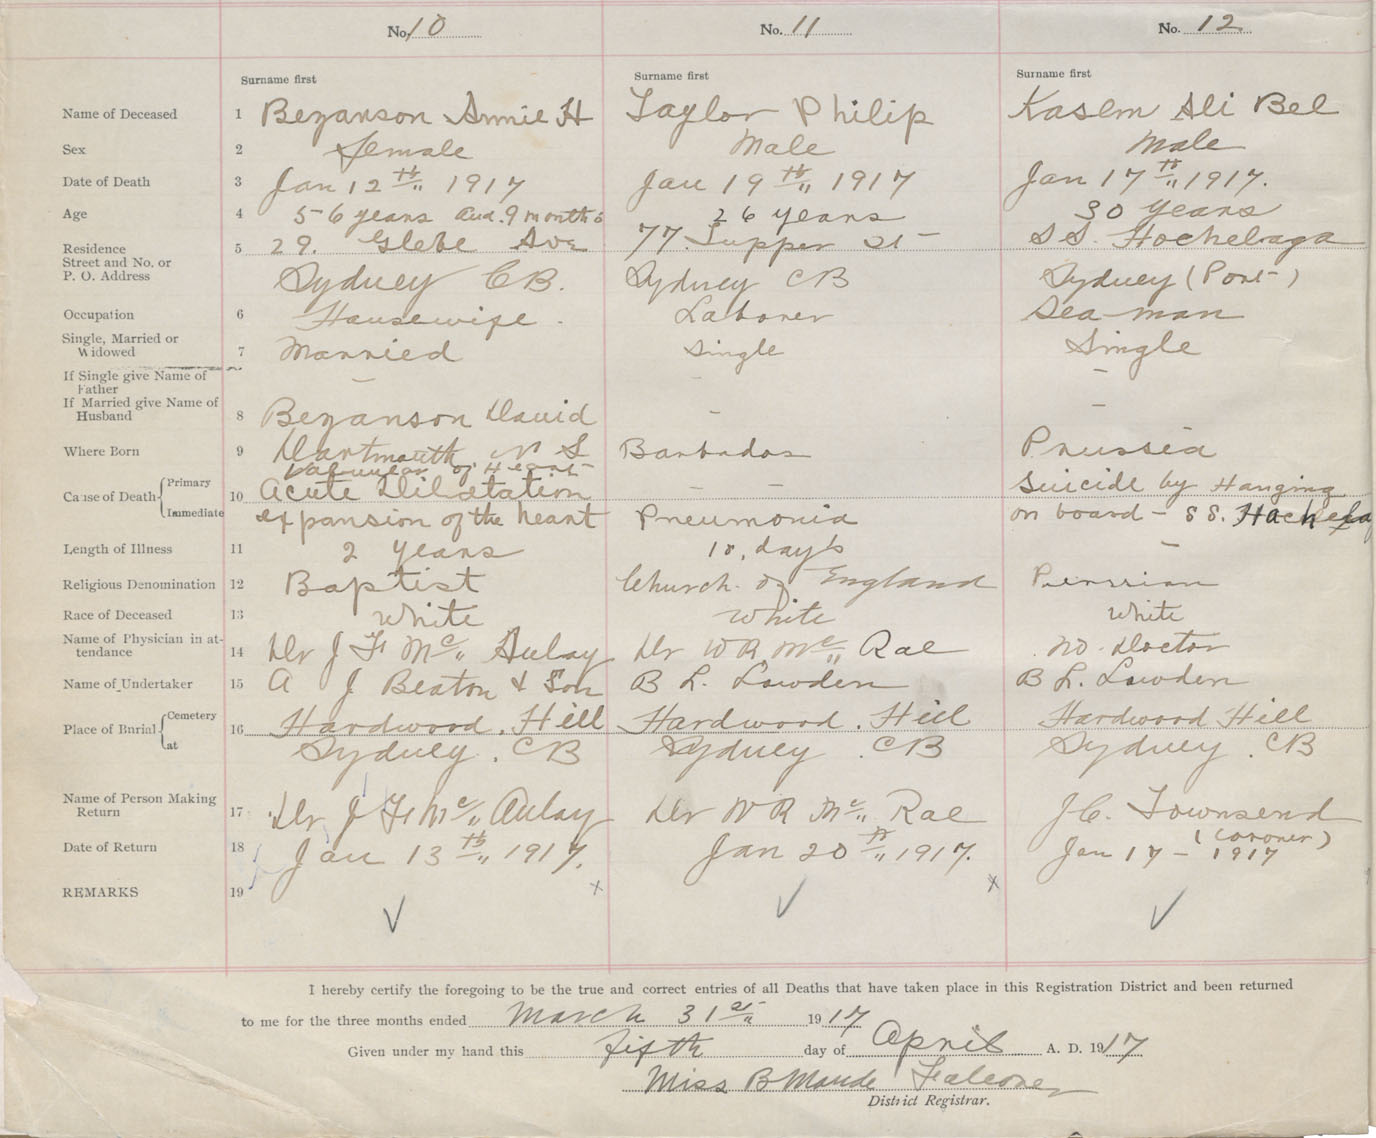 No. 10 No. 11 No. 12
Surname first Surname first Surname first
Name of Deceased 1 Bezanson Annie H Taylor Philip Kasem Ali Bel
Sex 2 Female Male Male
Date of Death 3 Jan 12th 1917 Jan 19th 1917 Jan 17th 1917.
Age 4 56 years and 9 months 26 years 30 years
Residence 5 29. Glebe Ave 77. Tupper St S S. Hochelaga
Street and No. or
P. O. Address Sydney C B. Sydney C B Sydney (Port)
Occupation 6 Housewife. Laborer Sea-man
Single, Married or
Widowed 7 Married Single Single
If Single give Name of
Father — - —
If Married give Name of
Husband 8 Bezanson David - —
Where Born 9 Dartmouth N S Barbados Prussia
Valvular of Heart
Cause of Death Primary 10 Acute Dilatation — — Suicide by Hanging
Immediate expansion of the heart Pneumonia on board - S S.
Length of Illness 11 2 years 10, days —
Religious Denomination 12 Baptist Church of England
Race of Deceased 13 White White White
Name of Physician in at-
tendance 14 Dr J F Mc Aulay Dr W R Mc Rae No Doctor
Name of Undertaker 15 A J Beaton & Son B L. Lowden B L. Lowden
Place of Burial Cemetery 16 Hardwood Hill Hardwood Hill Hardwood Hill
at Sydney. C B Sydney. C B Sydney. C B
Name of Person Making
Return 17 Dr J F Mc Aulay Dr W R Mc Rae J C. Townsend
(coroner)
Date of Return 18 Jan 13th 1917. Jan 20th 1917. Jan 17 - 1917
REMARKS 19
I hereby certify the foregoing to be the true and correct entries of all Deaths that have taken place in this Registration District and been returned
to me for the three months ended March 31st 1917
Given under my hand this fifth day of April A. D. 1917
Miss B Maude Falconer
District Registrar.